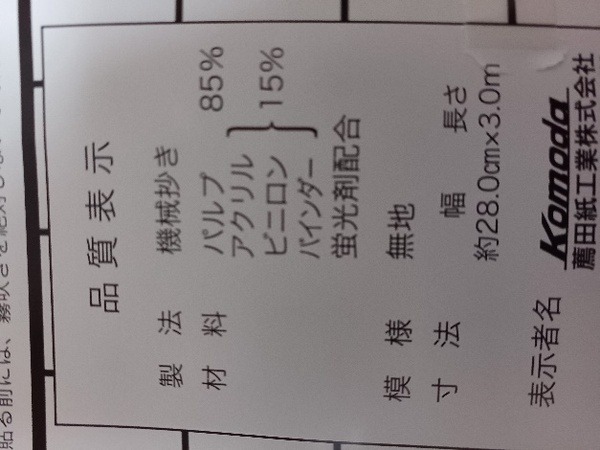 品質表示
製法 機械抄き
材料 パルプ 85%
アクリル
ビニロン 15%
バインダー
蛍光剤配合
模様 無地
寸法 幅 長さ
約28.0cm×3.0m
表示者名 Komoda
薦田紙工業株式会社
貼る前には、霧吹きを絶対しない